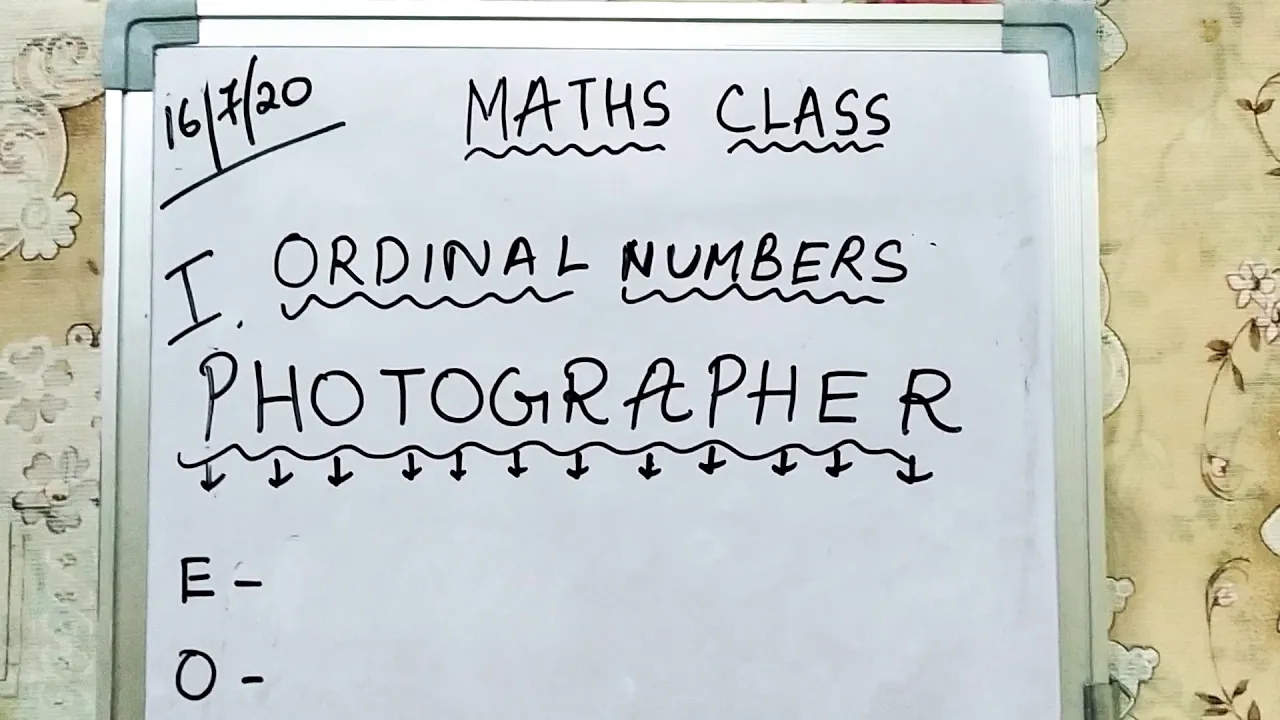 16/7/20
MATHS CLASS
I. ORDINAL NUMBERS
PHOTOGRAPHER
↓ ↓ ↓ ↓ ↓ ↓ ↓ ↓ ↓ ↓ ↓ ↓
E -
O -